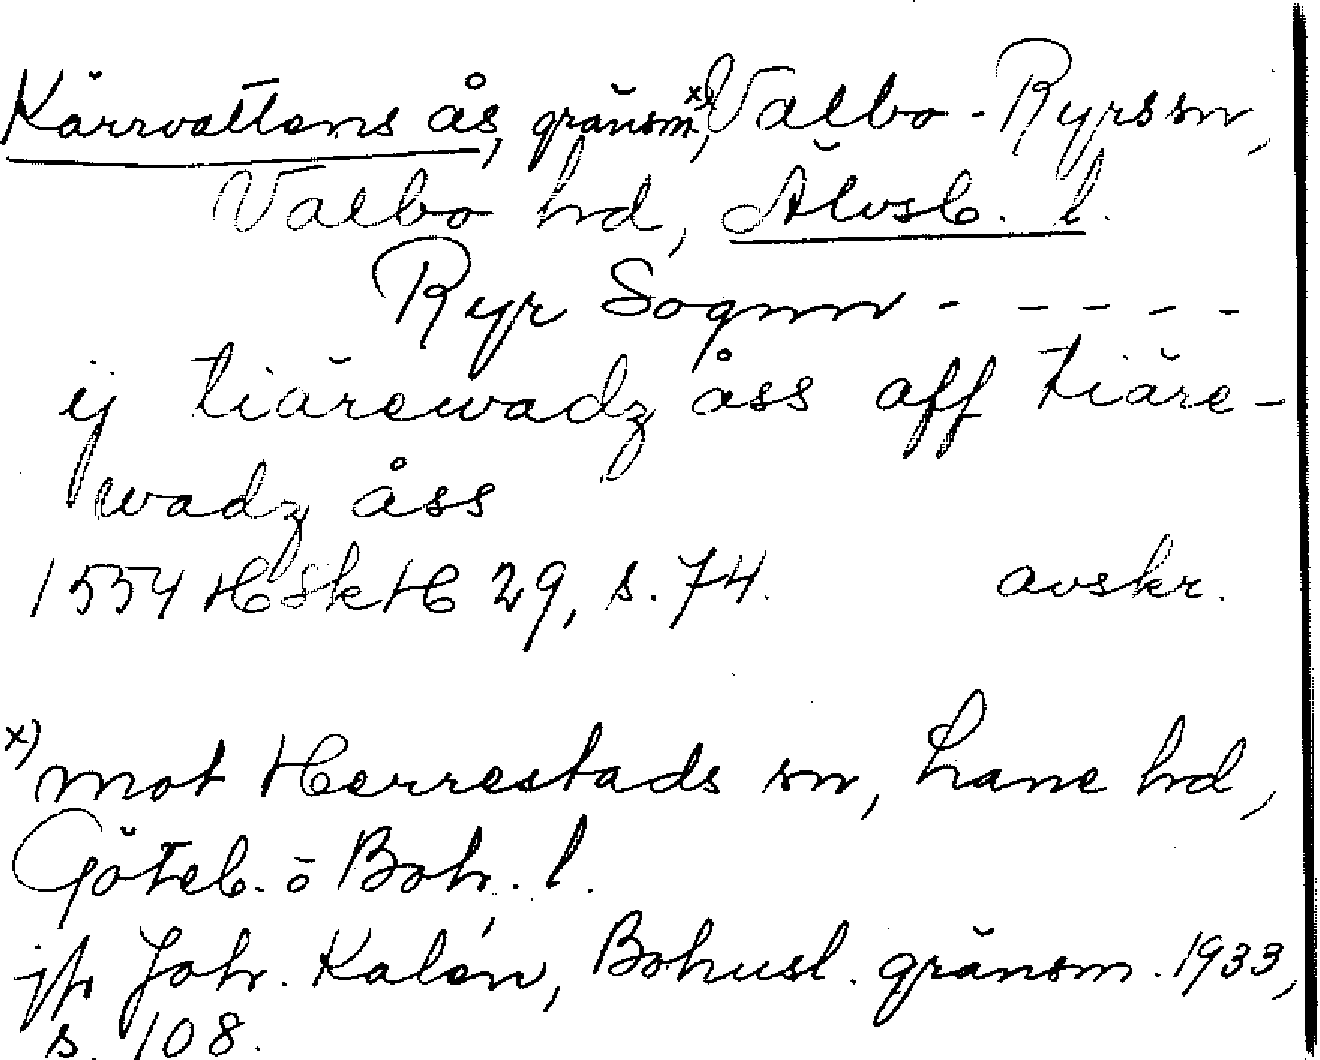 Kärrvattens ås, gränsm.x), Valbo-Ryrs sn,
Valbo hd, Älvsb. l.
Ryr Sognn - - - - -
ij tiärewadz åss aff tiäre-
wadz åss
1554 HSkH 29, s. 74. avskr.
x) mot Herrestads sn, Lane hd,
Göteb. o Boh. l.
jfr Joh. Kalén, Bohusl. gränsm. 1933,
s. 108.